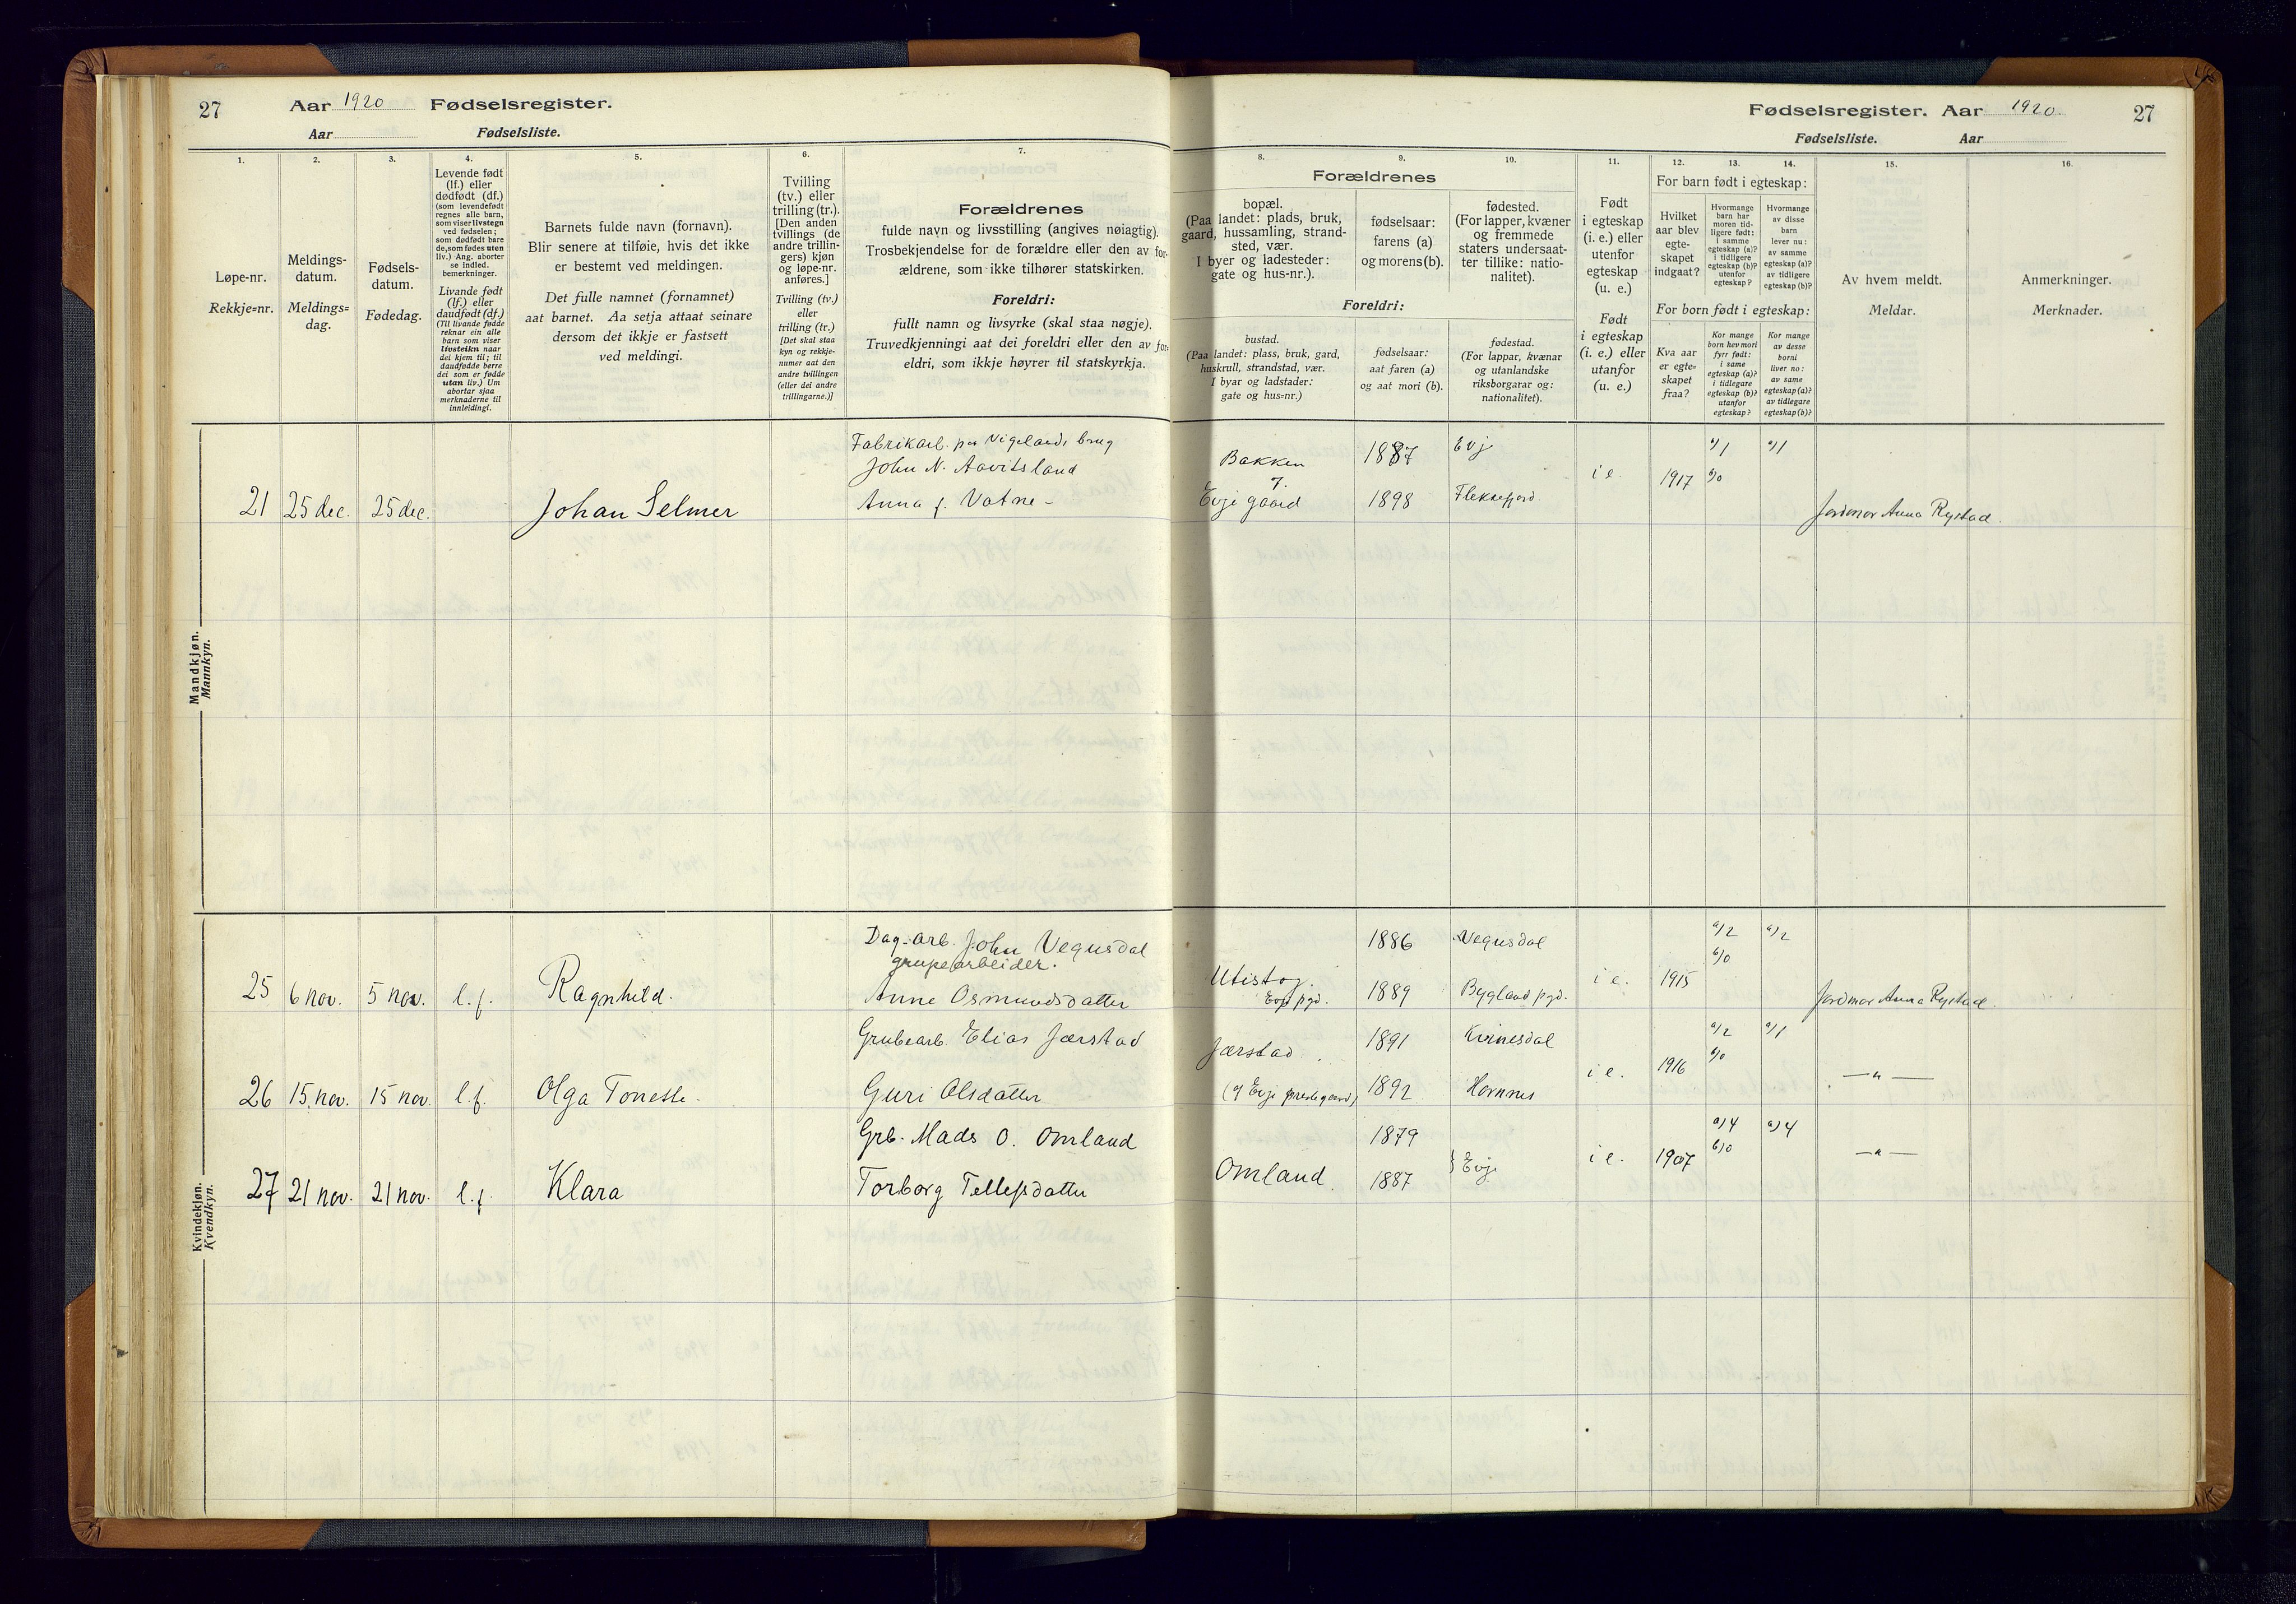 27 Aar 1920 Fødselsregister.
Aar Fødselsliste.
Fødselsregister. Aar 1920 27
Fødselsliste. Aar
1.
Løpe-nr.
Rekkje-nr.
2.
Meldings-
datum.
Meldings-
dag.
3.
Fødsels-
datum.
Fødedag.
4.
Levende født
(lf.) eller
dødfødt (df.)
(som levendefødt
regnes alle barn,
som viser livstegn
ved fødselen;
som dødfødt bare
de, som fødes uten
liv.) Ang. aborter
se indled.
bemerkninger.
Livande født
(lf.) eller
daudfødt (df.)
(Til livande fødde
reknar ein alle
barn som viser
livsteikn naar
dei kjem til; til
daudfødde berre
dei som er fødde
utan liv.) Um
abortar sjaa
merknaderne til
innleidingi.
5.
Barnets fulde navn (fornavn).
Blir senere at tilføie, hvis det ikke
er bestemt ved meldingen.
Det fulle namnet (fornamnet)
aat barnet. Aa setja attaat seinare
dersom det ikkje er fastsett
ved meldingi.
6.
Tvilling
(tv.) eller
trilling (tr.).
[Den anden
tvillings (de
andre trillin-
gers) kjøn
og løpe-nr.
anføres.]
Tvilling (tv.)
eller
trilling (tr.)
[Det skal staa
kyn og rekkje-
numer aat den
andre tvillingen
(eller dei andre
trillingarne.)]
7.
Forældrenes
fulde navn og livsstilling (angives nøiagtig).
Trosbekjendelse for de forældre eller den av for-
ældrene, som ikke tilhører statskirken.
Foreldri:
fullt namn og livsyrke (skal staa nøgje).
Truvedkjenningi aat dei foreldri eller den av for-
eldri, som ikkje høyrer til statskyrkja.
Forældrenes
8.
bopæl.
(Paa landet: plads, bruk,
gaard, hussamling, strand-
sted, vær.
I byer og ladesteder:
gate og hus-nr.).
Foreldri:
bustad.
(Paa landet: plass, bruk, gard,
huskrull, strandstad, vær.
I byar og ladstader:
gate og hus-nr.)
9.
fødselsaar:
farens (a)
og morens (b).
fødselsaar:
aat faren (a)
og aat mori (b).
10.
fødested.
(For lapper, kvæner
og fremmede
staters undersaat-
ter tillike: natio-
nalitet).
fødestad.
(For lappar, kvænar
og utanlandske
riksborgarar og:
nationalitet).
11.
Født
i egteskap
(i. e.) eller
utenfor
egteskap
(u. e.)
Født
i egteskap
(i. e.) eller
utanfor
(u. e.)
For barn født i egteskap:
12.
Hvilket
aar blev
egte-
skapet
indgaat?
For born født i egteskap:
Kva aar
er egte-
skapet
fraa?
13.
Hvormange
barn har
moren tid-
ligere født:
i samme
egteskap (a)?
i tidligere
egteskap (b)?
utenfor
egteskap?
Kor mange
born hev mori
fyrr født:
i same
egteskap (a)?
i tidlegare
egteskap (b)?
utanfor
egteskap?
14.
Hvormange
av disse
barn
lever nu:
av samme
egteskap (a)?
av tidligere
egteskap (b)?
Kor mange
av desse
borni
liver no:
av same
egteskap (a)?
av tidlegare
egteskap (b)?
15.
Av hvem meldt.
Meldar.
16.
Anmerkninger.
Merknader.
Mandkjøn.
Mannkyn.
Fabrikarb. paa Vigelands brug
John N. Aavitsland Bakken 1887 Evj a/1 a/1
21 25 dec. 25 dec. Johan Selmer Anna f. Vatne - Evje gaard 1898 Flekkefjord i e. 1917 b/0 Jordmor Anna Rystad
Kvindekjøn.
Kvendkyn.
Dag-arb. John Vegusdal 1886 Vegusdal a/2 a/2
grubearbeider.
25 6 nov. 5 nov. l. f. Ragnhild. Anne Osmundsdatter Utistog. Evje pgd. 1889 Bygland pgd. i e. 1915 b/0 Jordmor Anna Rystad.
Grubearb. Elias Jærstad Jærstad 1891 Kvinesdal a/2 a/1
26 15 nov. 15 nov. l. f. Olga Tonette. Guri Olsdatter (Evje prestegaard) 1892 Hornnes i e. 1916 b/0 —"—
Grb. Mads O. Omland 1879 a/4 a/4
27 21 nov. 21 nov. l. f. Klara Torborg Tellefsdatter Omland 1887 Evje i e. 1907 b/0 —"—